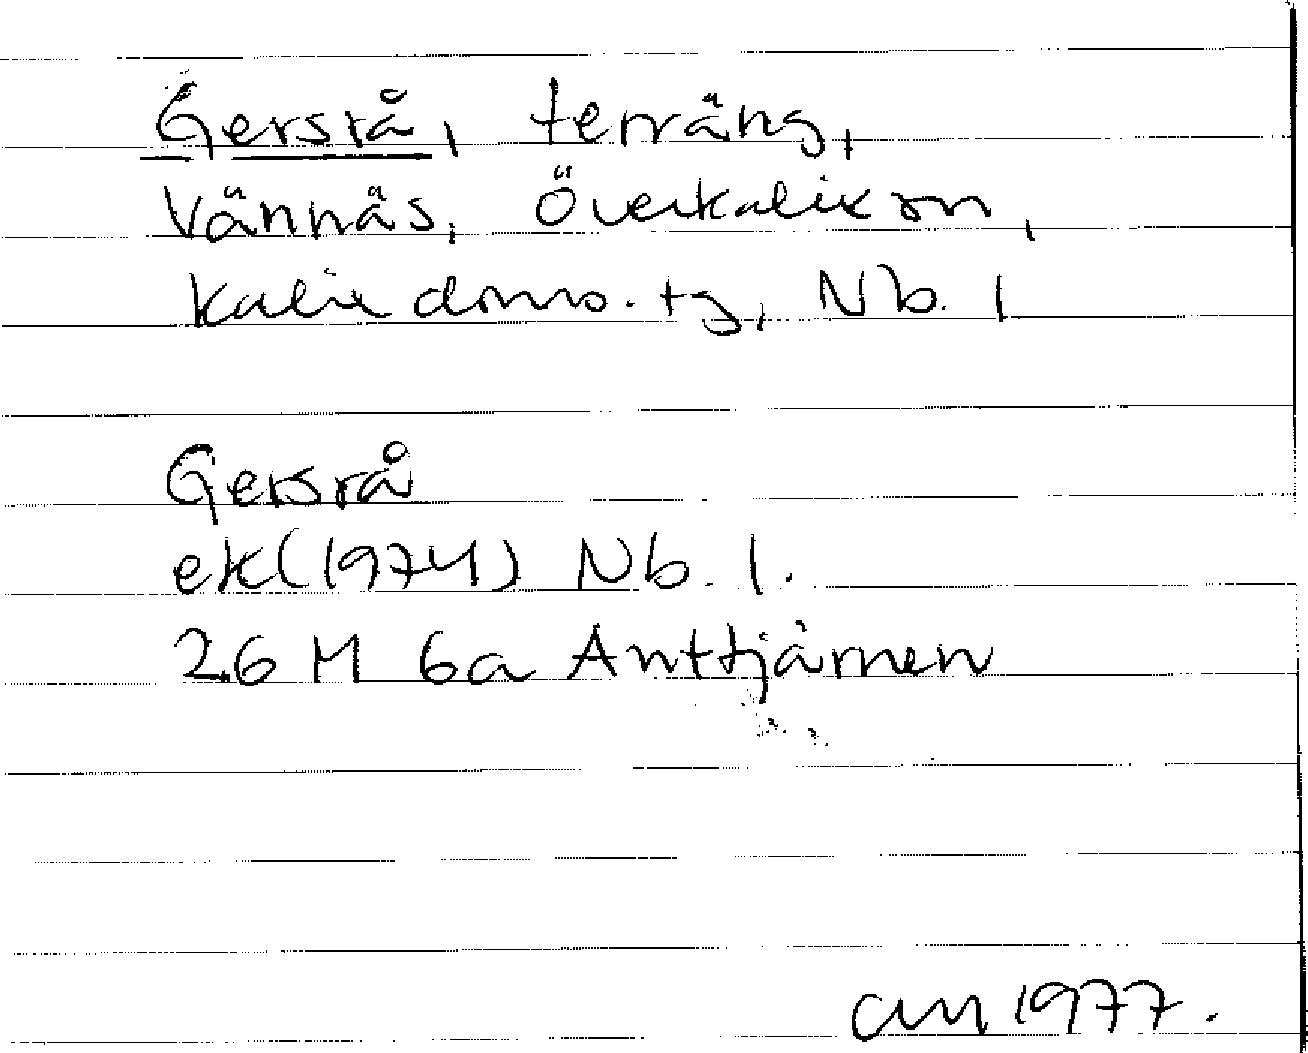 Gersrå, terräng,
Vännäs, Överkalix sn,
Kalix doms. tg, Nb. l
Gersrå
ek (1974) Nb. l.
26 M 6a Anttjärnen
am 1977.